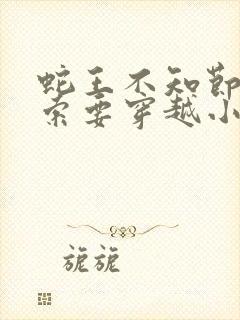 蛇王不知节
索要穿越小
旎旎